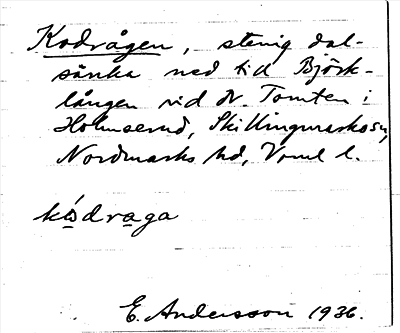 Kodrågen, stenig dal-
sänka ned till Björk-
lången vid N. Tomten i
Holmserud, Skillingmarks sn,
Nordmarks hd, Vrml l.
kòdraga
E. Andersson 1936.